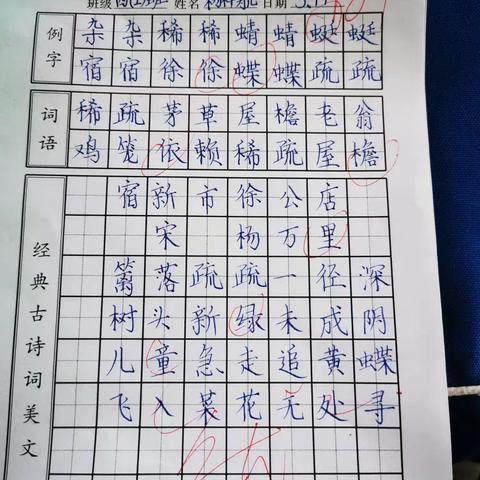 班级 姓名 日期
例字
杂杂稀稀蜻蜻蜓蜓
宿宿徐徐蝶蝶疏疏
词语
稀疏茅草屋檐老翁
鸡笼依赖稀疏屋檐
经典古诗词美文
宿新市徐公店
宋 杨万里
篱落疏疏一径深
树头新绿未成阴
儿童急走追黄蝶
飞入菜花无处寻